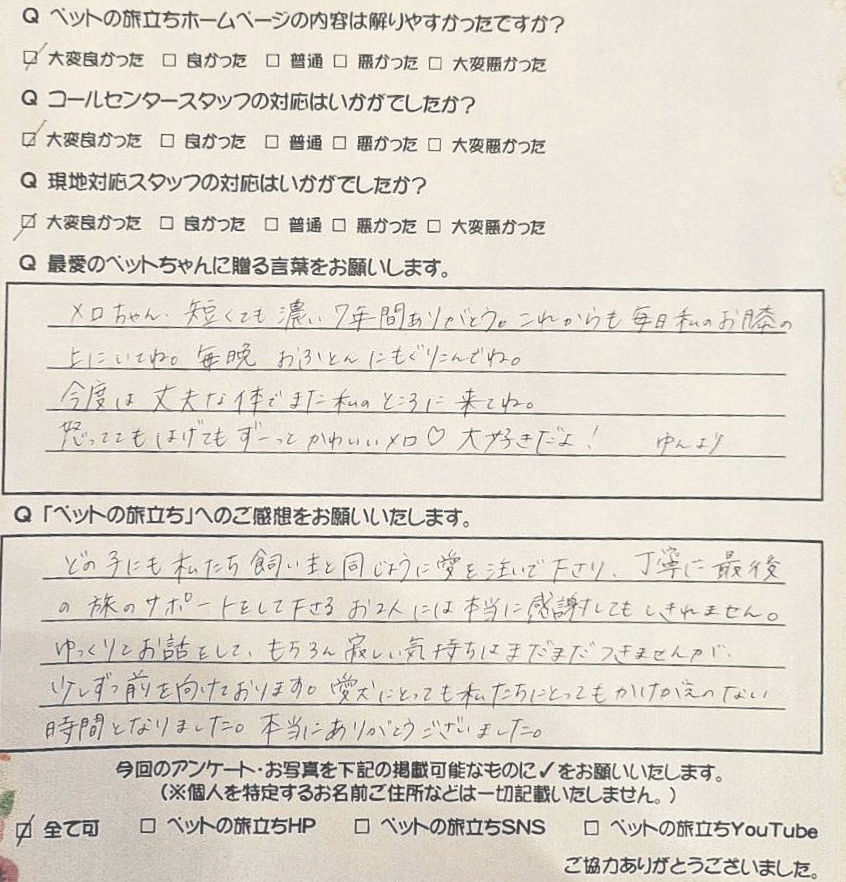 Q ペットの旅立ちホームページの内容は解りやすかったですか?
☑ 大変良かった □ 良かった □ 普通 □ 悪かった □ 大変悪かった
Q コールセンタースタッフの対応はいかがでしたか?
☑ 大変良かった □ 良かった □ 普通 □ 悪かった □ 大変悪かった
Q 現地対応スタッフの対応はいかがでしたか?
☑ 大変良かった □ 良かった □ 普通 □ 悪かった □ 大変悪かった
Q 最愛のペットちゃんに贈る言葉をお願いします。
メロちゃん、短くても濃い7年間ありがとう。これからも毎日私のお膝の
上にいてね。毎晩 おふとんにもぐりこんでね。
今度は丈夫な体でまた私のところに来てね。
怒っててもはげてもずーっとかわいいメロ♡大好きだよ! ゆんより
Q 「ペットの旅立ち」へのご感想をお願いいたします。
どの子にも私たち飼い主と同じように愛を注いで下さり、丁寧に最後
の旅のサポートをして下さるお2人には本当に感謝してもしきれません。
ゆっくりとお話をして、もちろん寂しい気持ちはまだまだつきませんが、
少しずつ前を向けております。愛犬にとっても私たちにとってもかけがえのない
時間となりました。本当にありがとうございました。
今回のアンケート・お写真を下記の掲載可能なものに✓をお願いいたします。
(※個人を特定するお名前ご住所などは一切記載いたしません。)
☑ 全て可 □ ペットの旅立ちHP □ ペットの旅立ちSNS □ ペットの旅立ちYouTube
ご協力ありがとうございました。